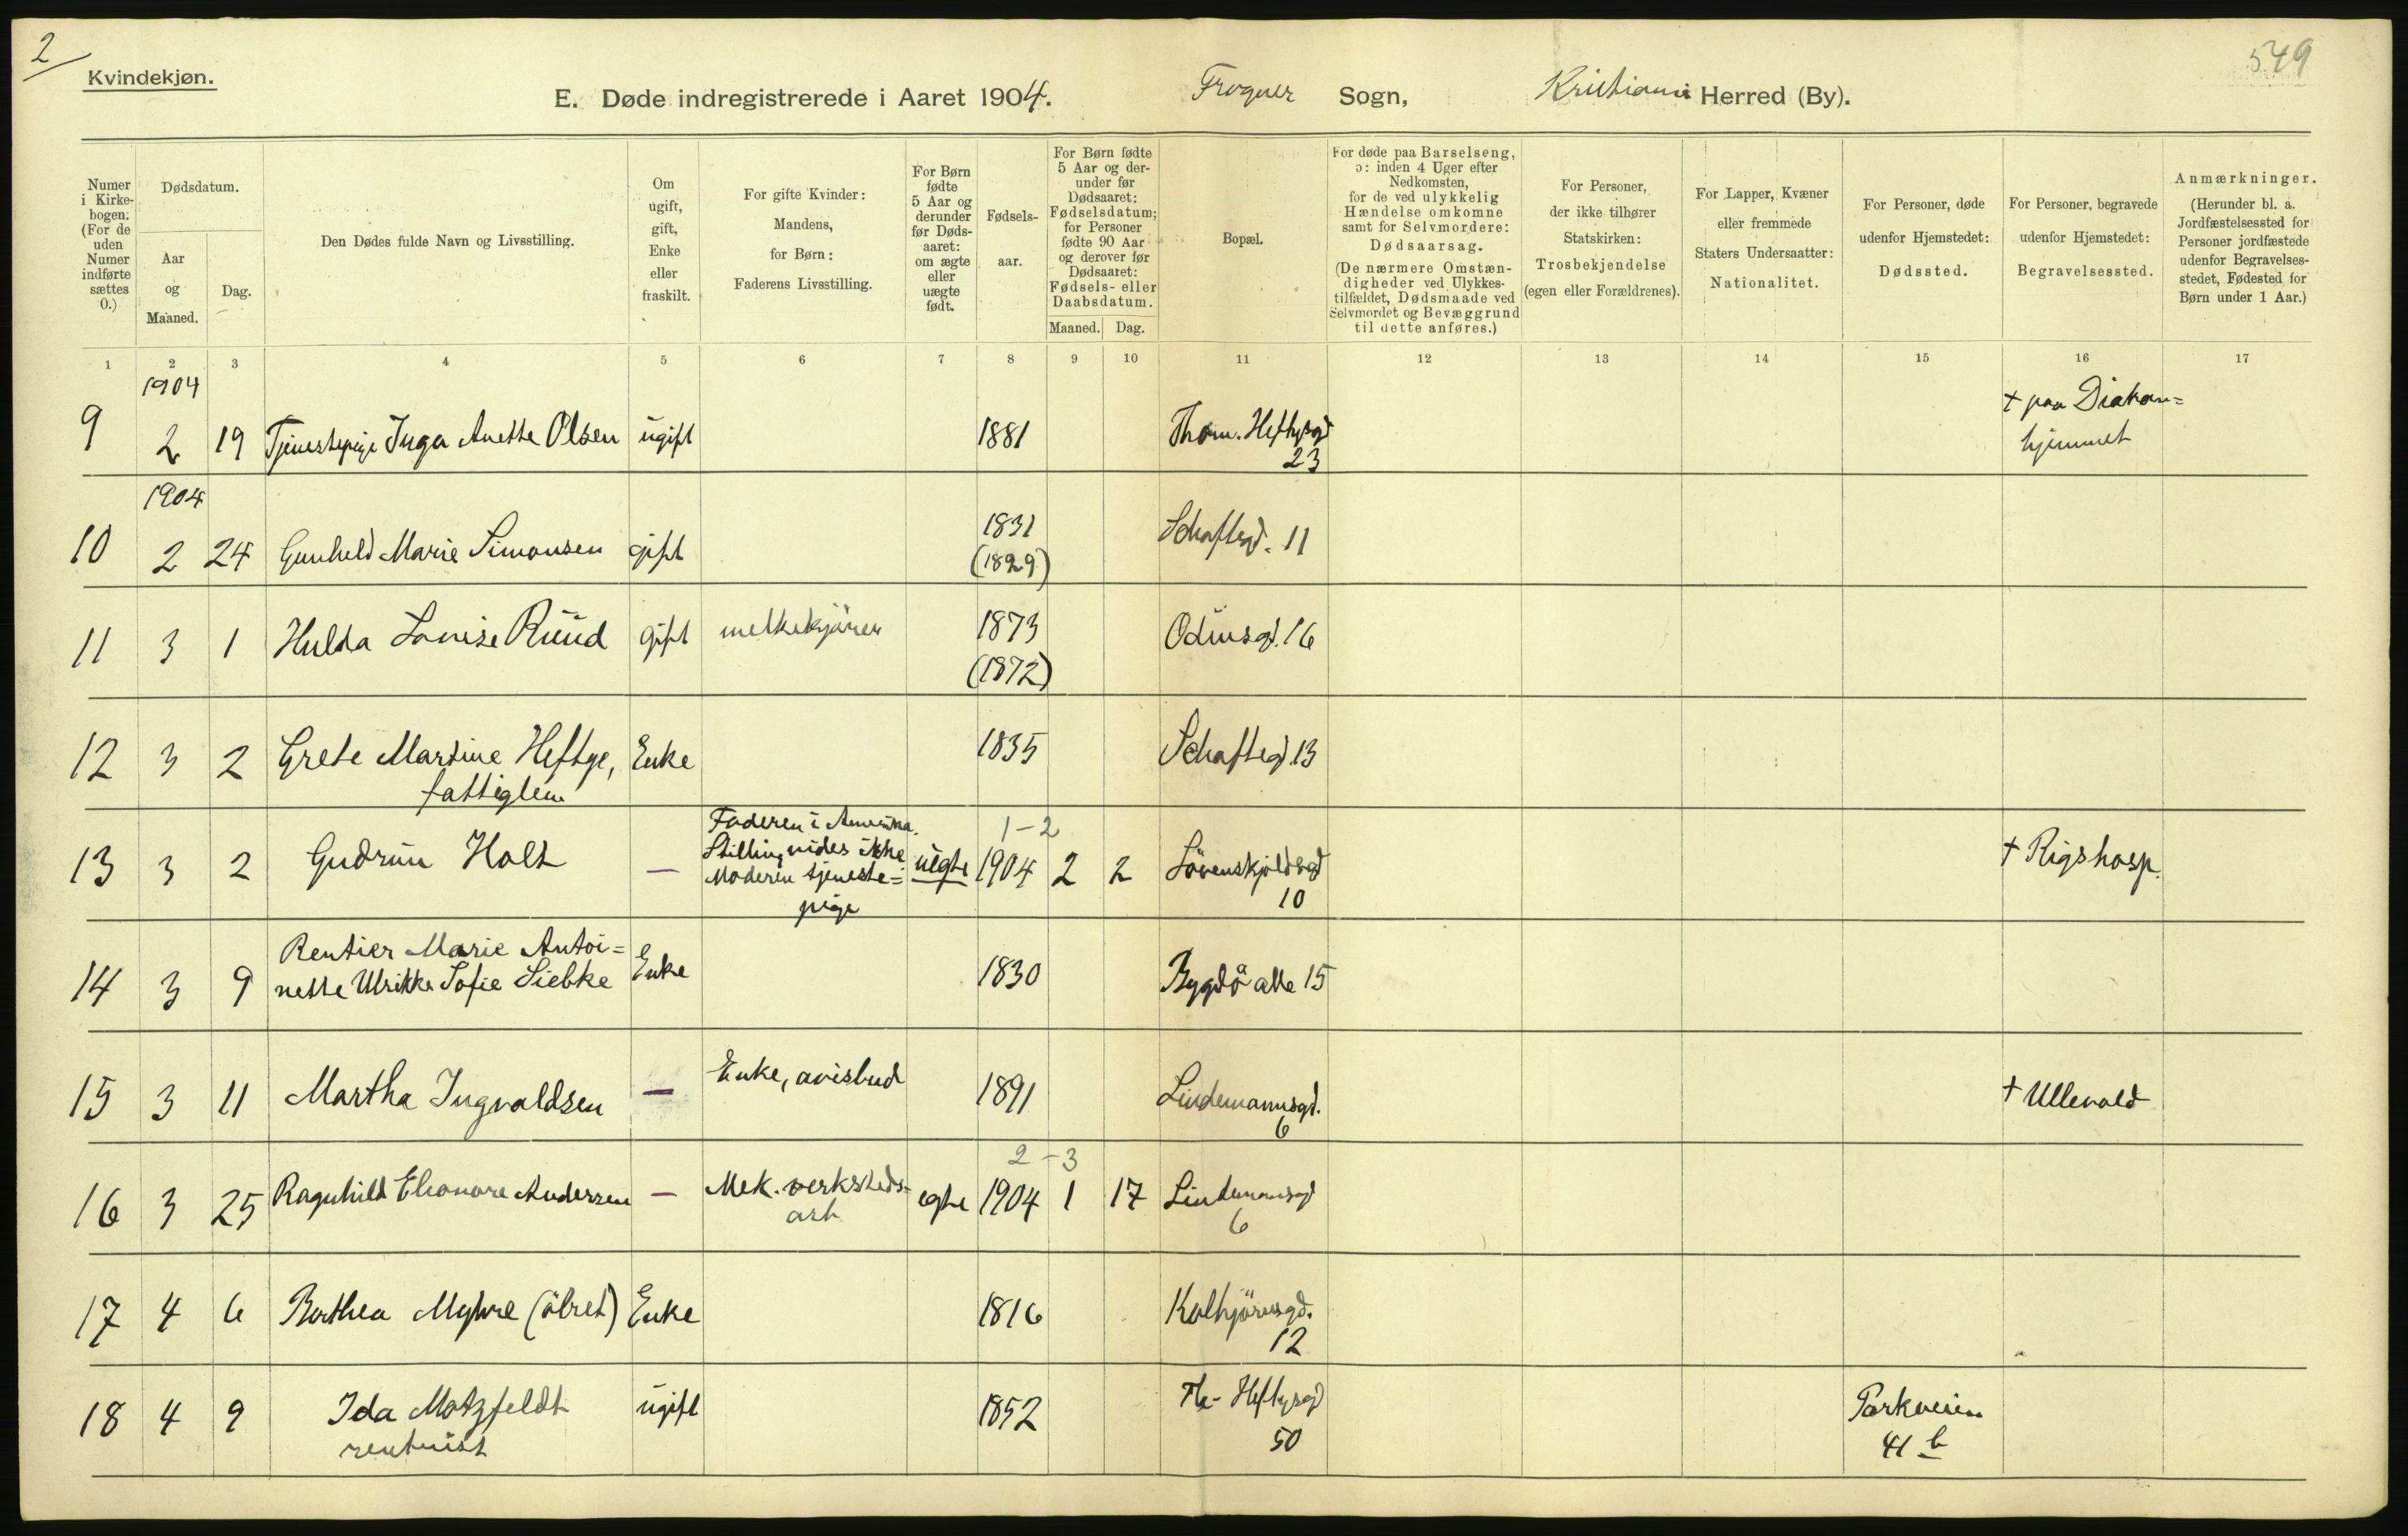 2
549
Kvindekjøn.
E. Døde indregistrerede i Aaret 1904. Frogner Sogn, Kristiania Herred (By).
Numer i Kirkebogen: (For de uden Numer indførte sættes 0.)
Dødsdatum.
Aar og Maaned.
Dag.
Den Dødes fulde Navn og Livsstilling.
Om ugift, gift, Enke eller fraskilt.
For gifte Kvinder: Mandens, for Børn: Faderens Livsstilling.
For Børn fødte 5 Aar og derunder før Dødsaaret: om ægte eller uægte født.
Fødselsaar.
For Børn fødte 5 Aar og derunder før Dødsaaret: Fødselsdatum; for Personer fødte 90 Aar og derover før Dødsaaret: Fødsels- eller Daabsdatum.
Maaned. Dag.
Bopæl.
For døde paa Barselseng, ɔ: inden 4 Uger efter Nedkomsten, for de ved ulykkelig Hændelse omkomne samt for Selvmordere: Dødsaarsag. (De nærmere Omstændigheder ved Ulykkestilfældet, Dødsmaade ved Selvmordet og Bevæggrund til dette anføres.)
For Personer, der ikke tilhører Statskirken: Trosbekjendelse (egen eller Forældrenes).
For Lapper, Kvæner eller fremmede Staters Undersaatter: Nationalitet.
For Personer, døde udenfor Hjemstedet: Dødssted.
For Personer, begravede udenfor Hjemstedet: Begravelsessted.
Anmærkninger. (Herunder bl. a. Jordfæstelsessted for Personer jordfæstede udenfor Begravelsesstedet, Fødested for Børn under 1 Aar.)
1 2 3 4 5 6 7 8 9 10 11 12 13 14 15 16 17
1904
9 2 19 Tjenestepige Inga Anette Olsen ugift 1881 Thom. Heftysgd 23 † paa Diakonhjemmet
1904
10 2 24 Gunhild Marie Simonsen gift 1831 (1829) Schaftegd. 11
11 3 1 Hulda Lovise Ruud gift melkekjører 1873 (1872) Odinsgd. 16
12 3 2 Grete Martine Heftye, fattiglem Enke 1835 Schaftegd. 13
13 3 2 Gudrun Holt — Faderen i Amerika. Stilling vides ikke. Moderen tjenestepige uegte 1-2 1904 2 2 Løvenskjoldsgd 10 † Rigshosp.
14 3 9 Rentier Marie Antoinette Ulrikke Sofie Siebke Enke 1830 Bygdø alle 15
15 3 11 Martha Ingvaldsen — Enke, avisbud 1891 Lindemannsgd. 6 † Ullevold
16 3 25 Ragnhild Eleonore Andersen — Mek. verksteds- arb. egte 2-3 1904 1 17 Lindemansgd 6
17 4 6 Berthea Myhre Enke 1816 12
18 4 9 Ida Motzfeldt rentnist ugift 1852 Th. Heftysgd 50 Parkveien 41 b